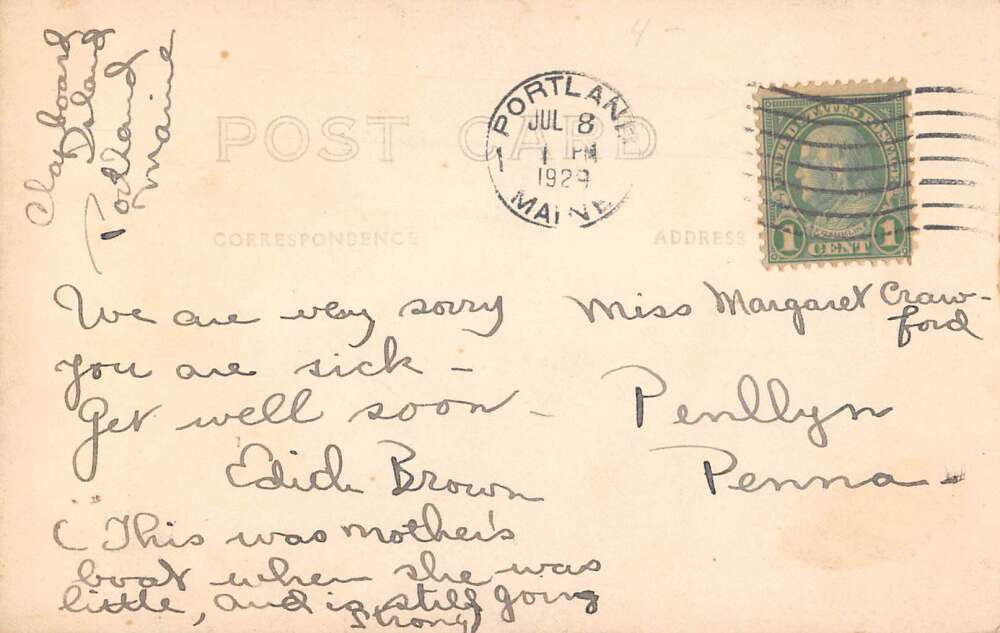 Clapboard
Island
Portland
Maine
POST CARD
CORRESPONDENCE
ADDRESS
PORTLAND
1
JUL 8
1 PM
1929
MAINE
UNITED STATES POSTAGE
FRANKLIN
1 CENT 1
We are very sorry
you are sick -
Get well soon -
Edith Brown
( This was mother's
boat when she was
little, and is still going
strong)
Miss Margaret Craw-
ford
Penllyn
Penna -
4 -